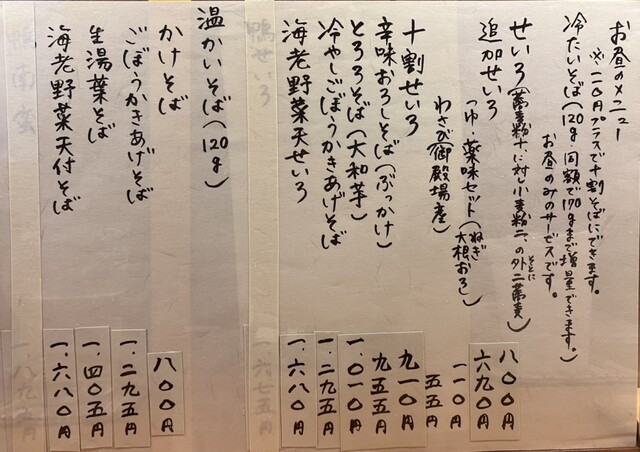 お昼のメニュー
※一一〇円プラスで十割そばにできます。
冷たいそば(120g・同額で170gまで増量できます。)
お昼のみのサービスです。
せいろ(蕎麦粉十に対し小麦粉二、の外二蕎麦)
そとに
八〇〇円
追加せいろ
六九〇円
つゆ・薬味セット(ねぎ 大根おろし)
一一〇円
わさび(御殿場産)
五五円
十割せいろ
九一〇円
辛味おろしそば(ぶっかけ)
九五五円
とろろそば(大和芋)
一、〇一〇円
冷やしごぼうかきあげそば
一、二九五円
海老野菜天せいろ
一、六八〇円
鴨せいろ
一、六七五円
温かいそば(120g)
かけそば
八〇〇円
ごぼうかきあげそば
一、二九五円
生湯葉そば
一、四〇五円
海老野菜天付そば
一、六八〇円
鴨南蛮